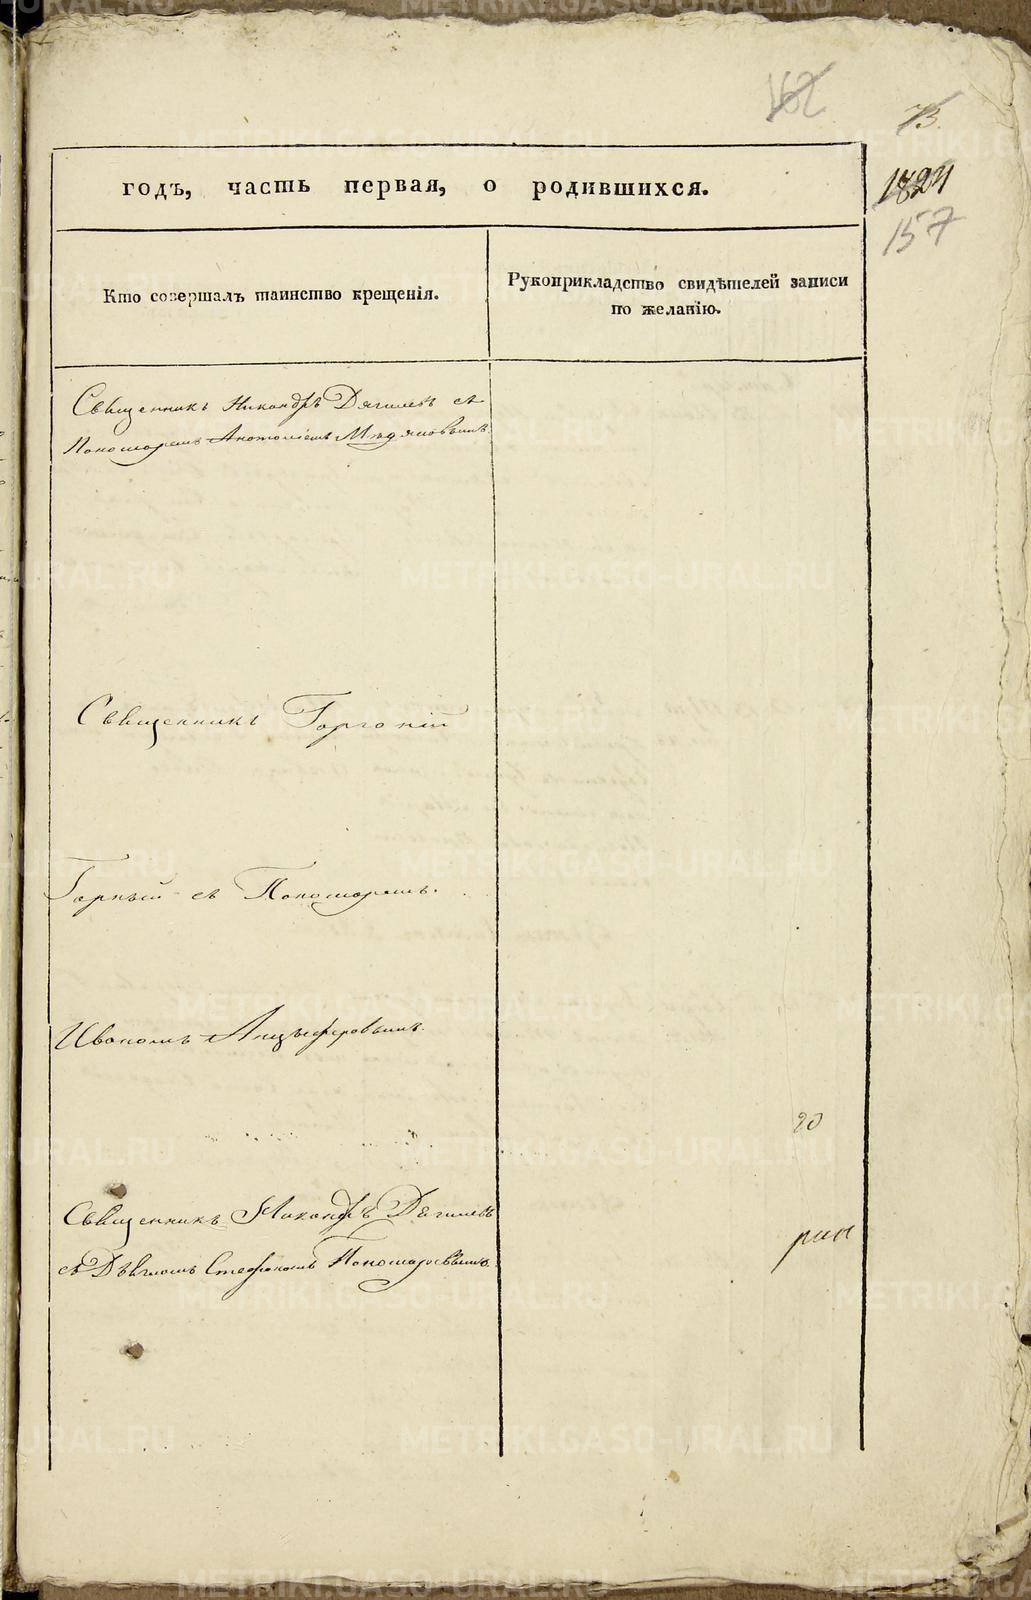 162
73.
1824
157
годъ, часть первая, о родившихся.
Кто совершалъ таинство крещенія.
Рукоприкладство свидѣтелей записи
по желанію.
Священникъ Никандръ Дягилевъ съ
Пономаремъ Анатоліемъ
Священникъ Горгоній
Горный съ Пономаремъ.
Иваномъ Анцыферовымъ.
20
Священникъ Никандръ Дягилевъ
съ Дьячкомъ Стефаномъ Пономаревымъ.
METRIKI.GASO-URAL.RU